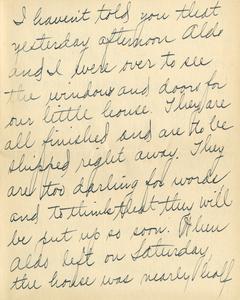 I haven't told you that
yesterday afternoon Aldo
and I were over to see
the windows and doors for
our little house. They are
all finished and are to be
shipped right away. They
are too darling for words
and to think that they will
be put up so soon. When
Aldo left on Saturday,
the house was nearly half